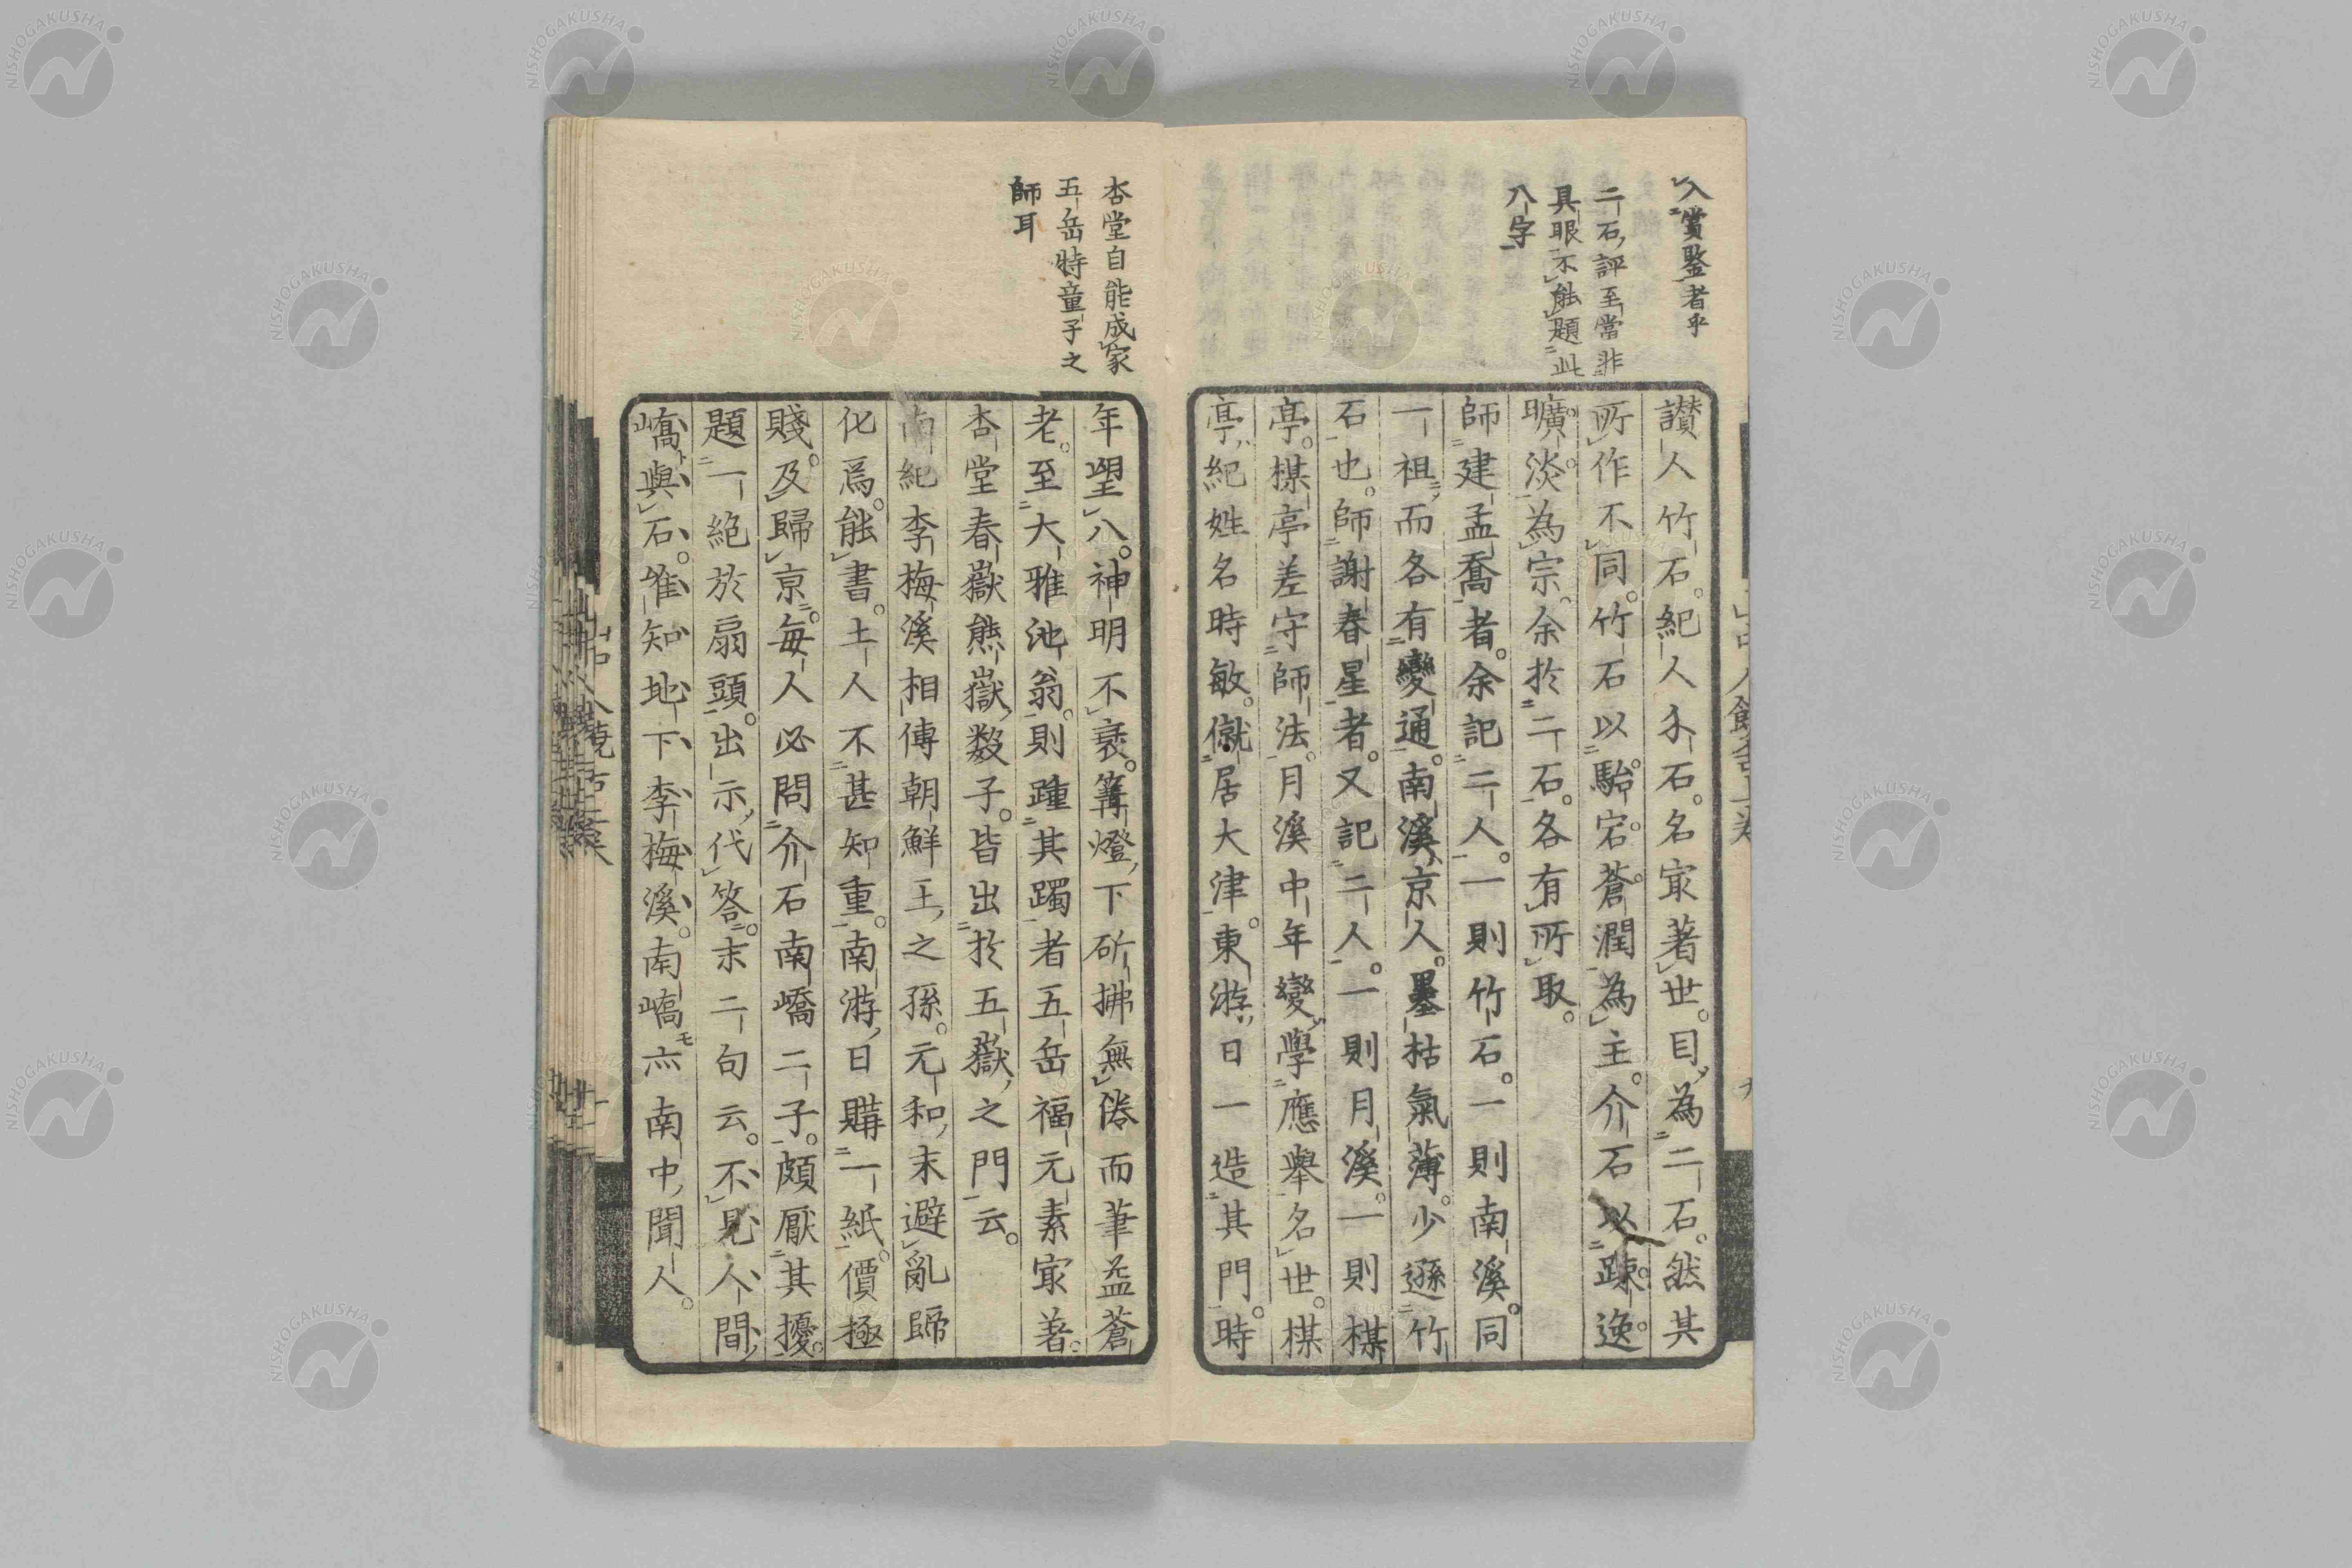 入賞鑒者乎
二石評至當非
具眼不能題此
八字
讃人竹石紀人介石名家著世目為二石然其
所作不同竹石以駘宕蒼潤為主介石以踈逸
曠淡為宗余於二石各有所取
師建孟喬者余記二人一則竹石一則南溪同
一祖而各有變通南溪京人墨枯氣薄少遜竹
石也師謝春星者又記二人一則月溪一則棋
亭棋亭差守師法月溪中年變學應舉名世棋
亭紀姓名時敏僦居大津東游日一造其門時
杏堂自能成家
五岳特童子之
師耳
年望八神明不衰篝燈下斫拂無倦而筆益蒼
老至大雅池翁則踵其躅者五岳福元素家著
杏堂春嶽熊嶽数子皆出於五嶽之門云
南紀李梅溪相傳朝鮮王之孫元和末避亂歸
化爲能書土人不甚知重南游日購一紙價極
賤及歸京每人必問介石南嶠二子頗厭其擾
題一絕於扇頭出示代答末二句云不見人間
嶠與石惟知地下李梅溪南嶠亦南中聞人